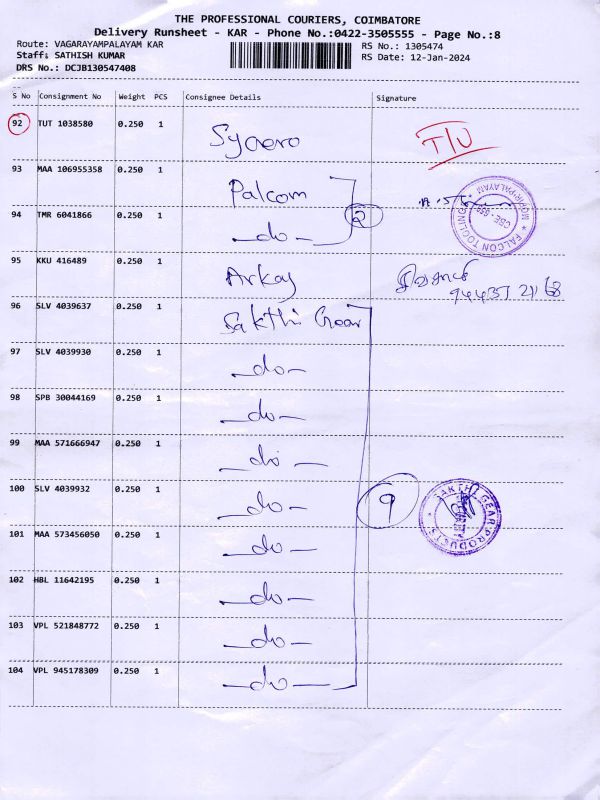 THE PROFESSIONAL COURIERS, COIMBATORE
Delivery Runsheet - KAR - Phone No.:0422-3505555 - Page No.:8
Route: VAGARAYAMPALAYAM KAR
RS No.: 1305474
Staff: SATHISH KUMAR
RS Date: 12-Jan-2024
DRS No.: DCJB130547408
S No Consignment No Weight PCS Consignee Details Signature
92 TUT 1038580 0.250 1
93 MAA 106955358 0.250 1 Palcom
94 TMR 6041866 0.250 1 -do-
2
FALCON TOOLING
MOPIRIPALAYAM
95 KKU 416489 0.250 1 Arkay
96 SLV 4039637 0.250 1 Sakthi Gear
97 SLV 4039930 0.250 1 -do-
98 SPB 30044169 0.250 1 -do-
99 MAA 571666947 0.250 1 -do-
100 SLV 4039932 0.250 1 -do-
9
SAKTHI GEAR PRODUCTS
101 MAA 573456050 0.250 1 -do-
102 HBL 11642195 0.250 1 -do-
103 VPL 521848772 0.250 1 -do-
104 VPL 945178309 0.250 1 -do-